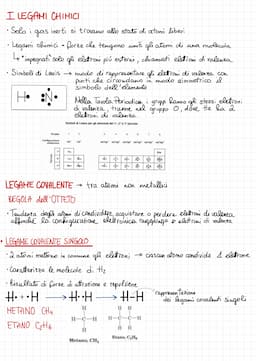 I LEGAMI CHIMICI
· Solo i gas inerti si trovano allo stato di atomi liberi
· Legami chimici = forze che tengono uniti gli atomi di una molecola
↳ impegnati solo gli elettroni più esterni, chiamati elettroni di valenza
· Simboli di Lewis → modo di rappresentare gli elettroni di valenza con
punti che circondano in modo simmetrico il
simbolo dell'elemento
H· :N·
Nella Tavola Periodica, i gruppi hanno gli stessi elettroni
di valenza, tranne nel gruppo 0, dove He ha 2
elettroni di valenza
LEGAME COVALENTE → tra atomi non metallici
REGOLA dell'OTTETTO
· Tendenza degli atomi di condividere, acquistare o perdere elettroni di valenza
affinché la configurazione elettronica raggiunga 8 elettroni di valenza
· LEGAME COVALENTE SINGOLO
· 2 atomi mettono in comune gli elettroni → ciascun atomo condivide 1 elettrone
· Caratterizza le molecole di H₂
· Risultato di forze di attrazione e repulsione
H· + ·H → H··H → H-H rappresentazione
dei legami covalenti singoli
METANO CH₄
ETANO C₂H₆
H H H
H-C-H H-C-C-H
H H H
Metano, CH₄ Etano, C₂H₆